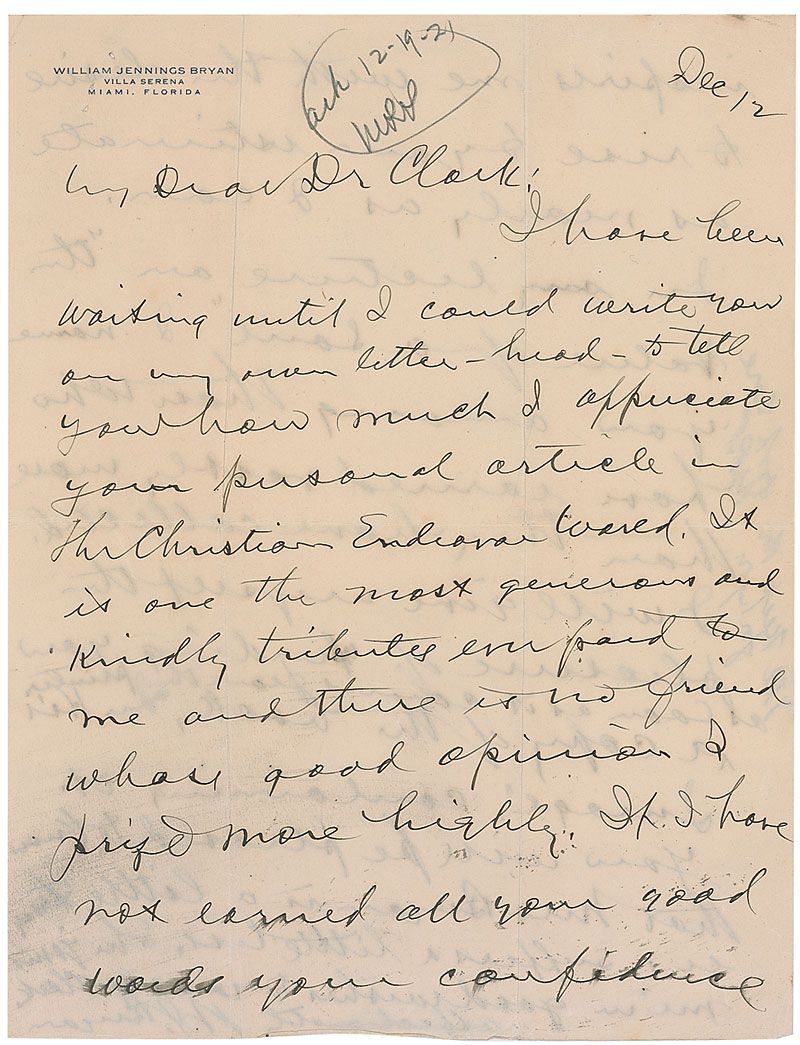 WILLIAM JENNINGS BRYAN
VILLA SERENA
MIAMI, FLORIDA
ack 12-19-21
Dec 12
My Dear Dr Clark:
I have been
waiting until I could write you
on my own letter-head - to tell
you how much I appreciate
your personal article in
the Christian Endeavor World. It
is one the most generous and
kindly tributes ever paid to
me and there is no friend
whose good opinion I
prize more highly. If I have
not earned all your good
words your confidence